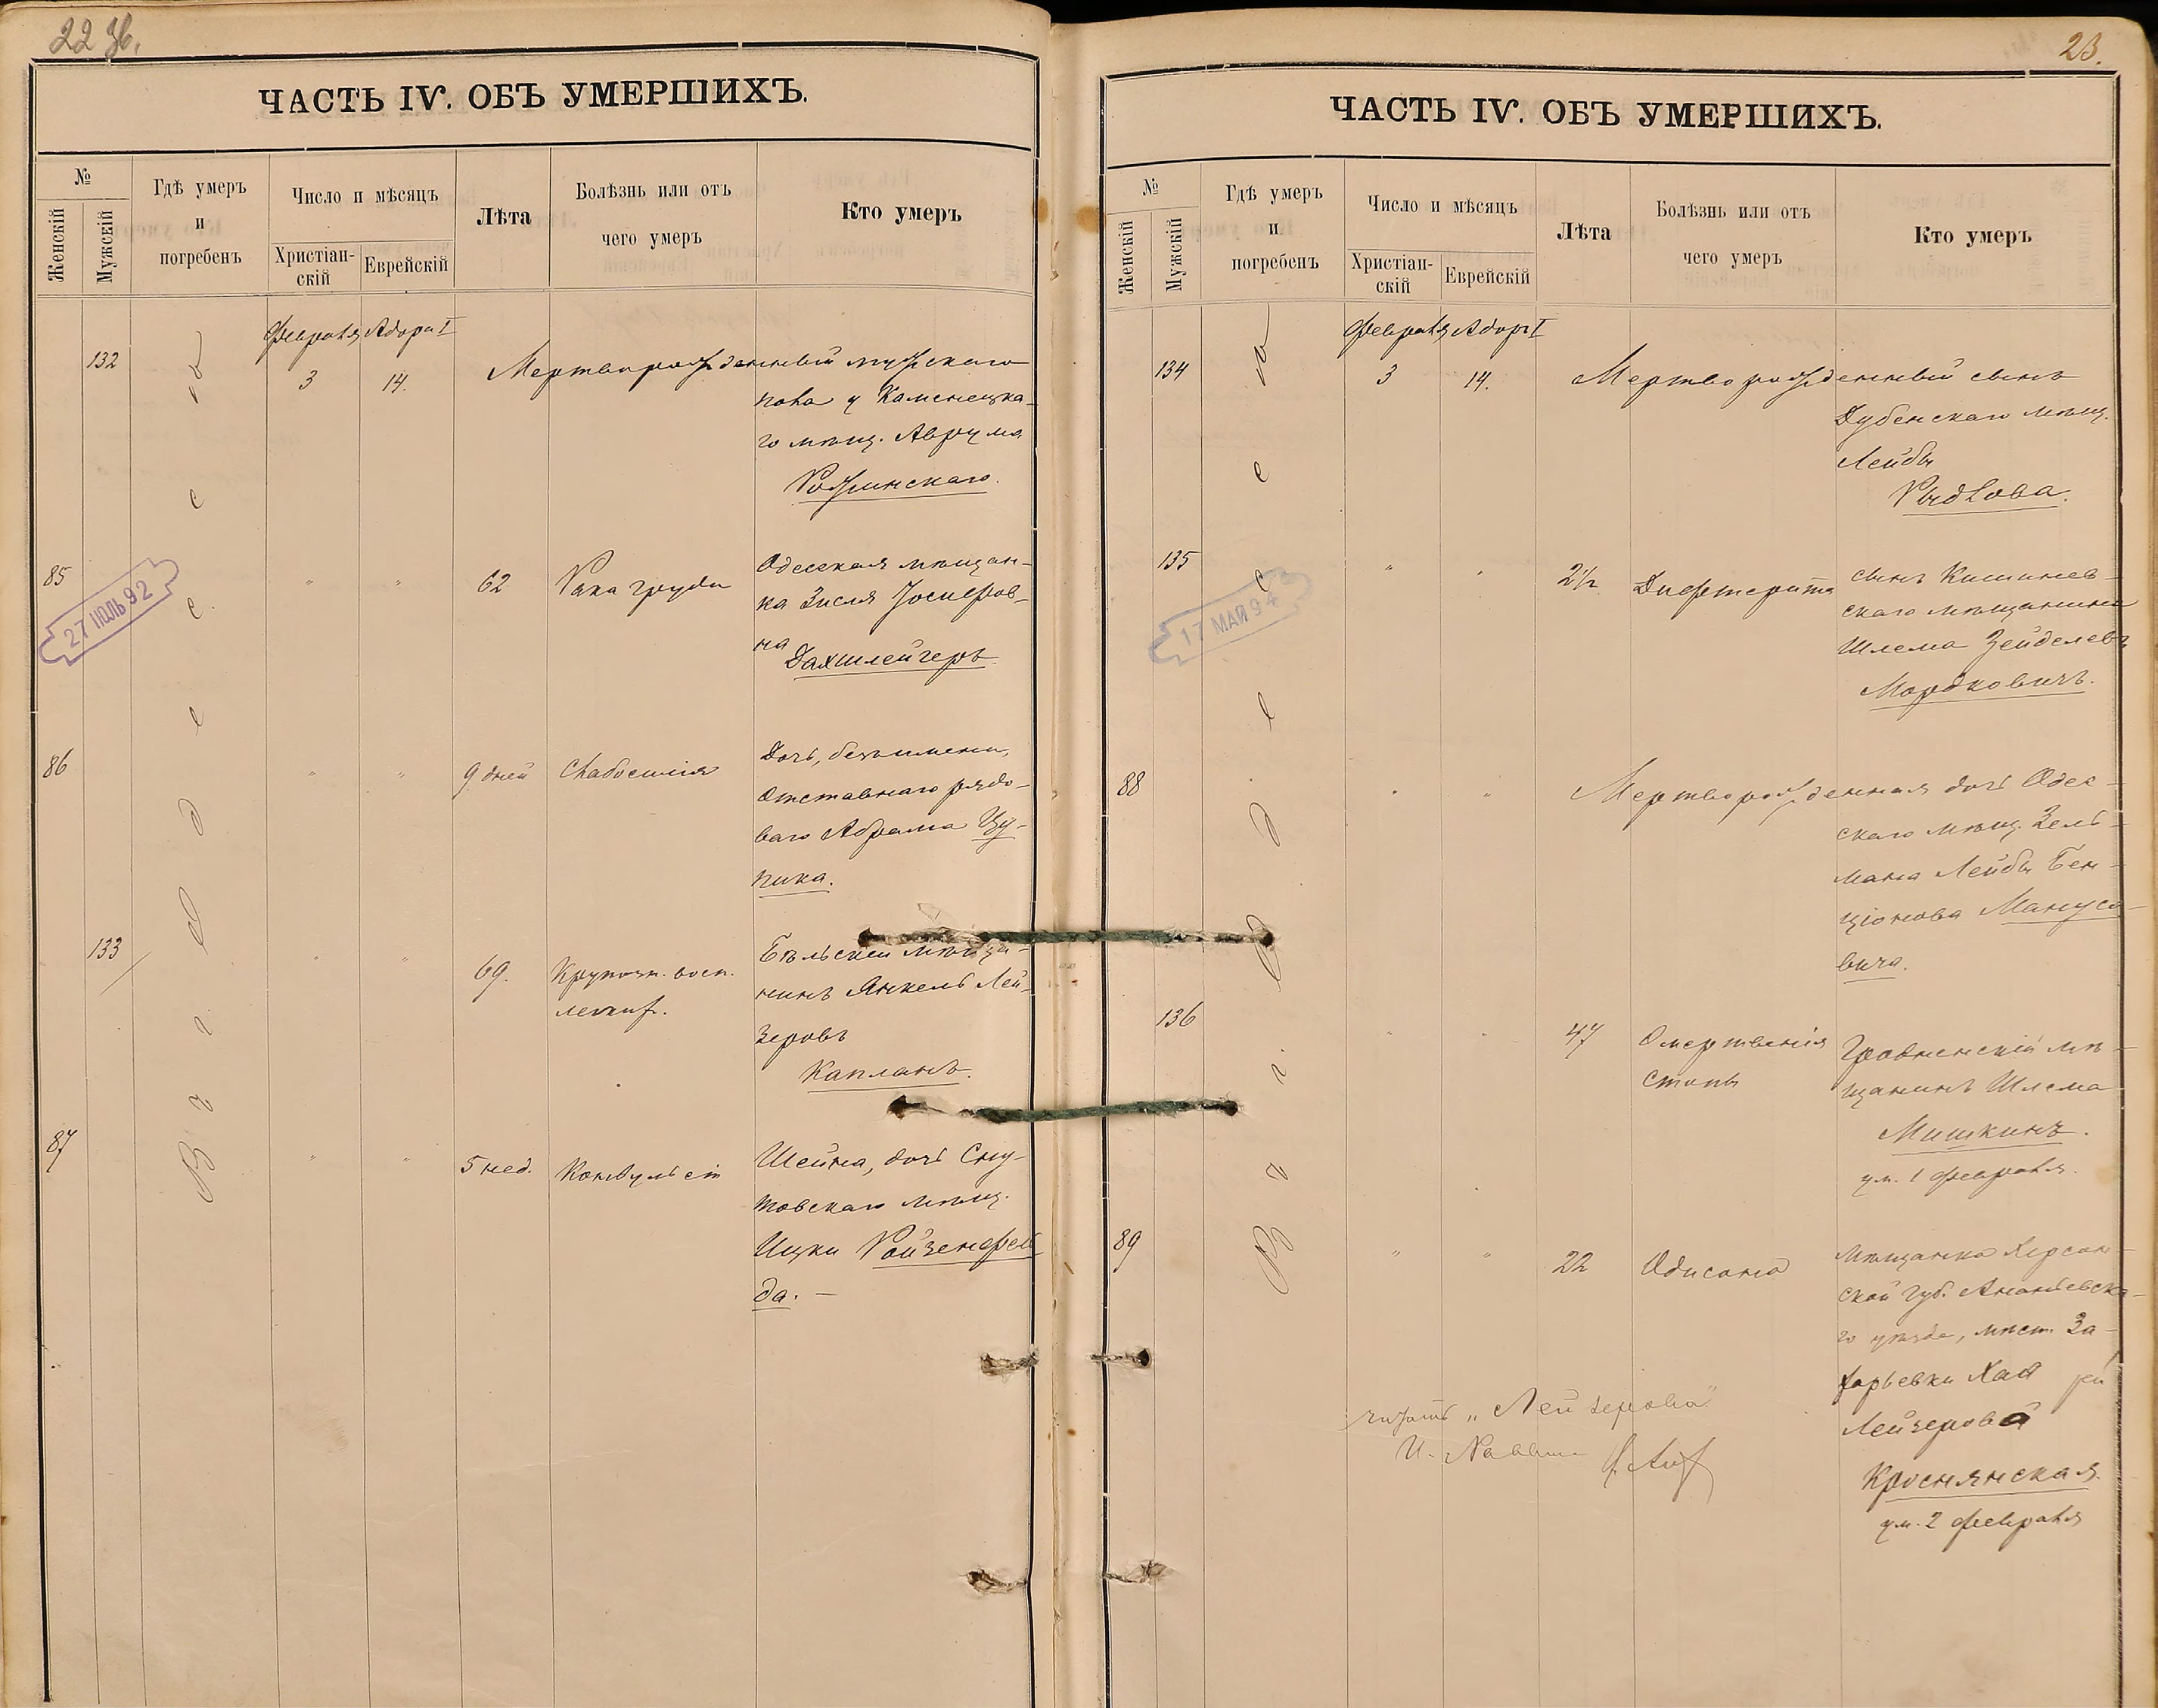 22 об.
ЧАСТЬ IV. ОБЪ УМЕРШИХЪ.
№
Женскій
Мужскій
Гдѣ умеръ
и
погребенъ
Число и мѣсяцъ
Христіан-
скій
Еврейскій
Лѣта
Болѣзнь или отъ
чего умеръ
Кто умеръ
Февраля Адара I
132 3 14. Мертворожденный мужскаго
пола у Каменецка-
го мѣщ. Аврума
Рожинскаго.
Въ г. Одессѣ
85 " " 62 Рака груди Одесская мѣщан-
ка Зисля Іосифов-
на Дахшлейгеръ
27 ІЮЛЬ 92
86 " " 9 дней Слабосилія Дочь, безъ имени,
отставнаго рядо-
ваго Абрама Цу-
пика.
133 " " 69. Крупозн. восп.
легких.
Бѣльскій мѣща-
нинъ Янкель Лей-
зеровъ
Капланъ.
87 " " 5 нед. Конвульсіи Шейна, дочь Сну-
товскаго мѣщ.
Ицки Ройзенфель
да. —
23.
ЧАСТЬ IV. ОБЪ УМЕРШИХЪ.
№
Женскій
Мужскій
Гдѣ умеръ
и
погребенъ
Число и мѣсяцъ
Христіан-
скій
Еврейскій
Лѣта
Болѣзнь или отъ
чего умеръ
Кто умеръ
Февраля Адара I
134 3 14. Мертворожденный сынъ
Дубенскаго мѣщ.
Лейбы
Рыдлова.
Въ г. Одессѣ
135 " " 2½ Дифтерита сынъ Кишинев-
скаго мѣщанина
Шлема Зейделевъ
Мордковичъ.
17 МАЙ 94
88 " " Мертворожденная дочь Одес-
скаго мѣщ. Зель-
мана Лейбы Бен-
ціонова Манусо-
вича.
136 " " 47 Омертвенія
стопы
Гродненскій мѣ-
щанинъ Шлема
Мишкинъ.
ум. 1 февраля.
89 " " 22 мѣщанка Херсон-
ской губ. Ананьевска-
го уѣзда, мѣст. За-
харьевки Хая
Лейзерова
Кроснянская.
ум. 2 февраля
читать „Лейзерова"
И. Раввин